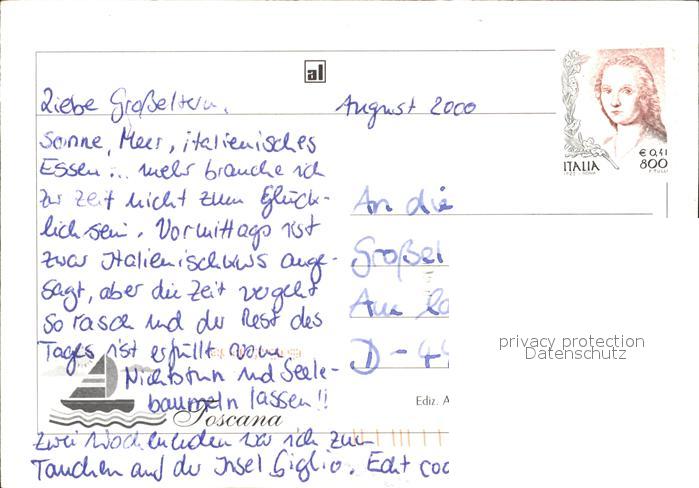 al
Liebe Großeltern,
August 2000
Sonne, Meer, italienisches
Essen ... mehr brauche ich
zur Zeit nicht zum Glück-
lichsein. Vormittags ist
zwar Italienischkurs ange-
sagt, aber die Zeit vergeht
so rasch und der Rest des
Tages ist erfüllt vom
Nichtstun und Seele-
baumeln lassen!!
Toscana
zwei Wochenenden war ich zum
Tauchen auf der Insel Giglio. Echt coo
An die
Großel
Am
D-44
Ediz. A
€ 0,41
ITALIA 800
privacy protection
Datenschutz